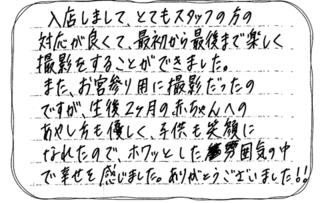 入店しまして、とてもスタッフの方の
対応が良くて、最初から最後まで楽しく
撮影をすることができました。
また、お宮参り用に撮影だったの
ですが、生後2ヶ月の赤ちゃんへの
あやし方も優しく、子供も笑顔に
なれたので、ホワッとした雰囲気の中
で幸せを感じました。ありがとうございました!!